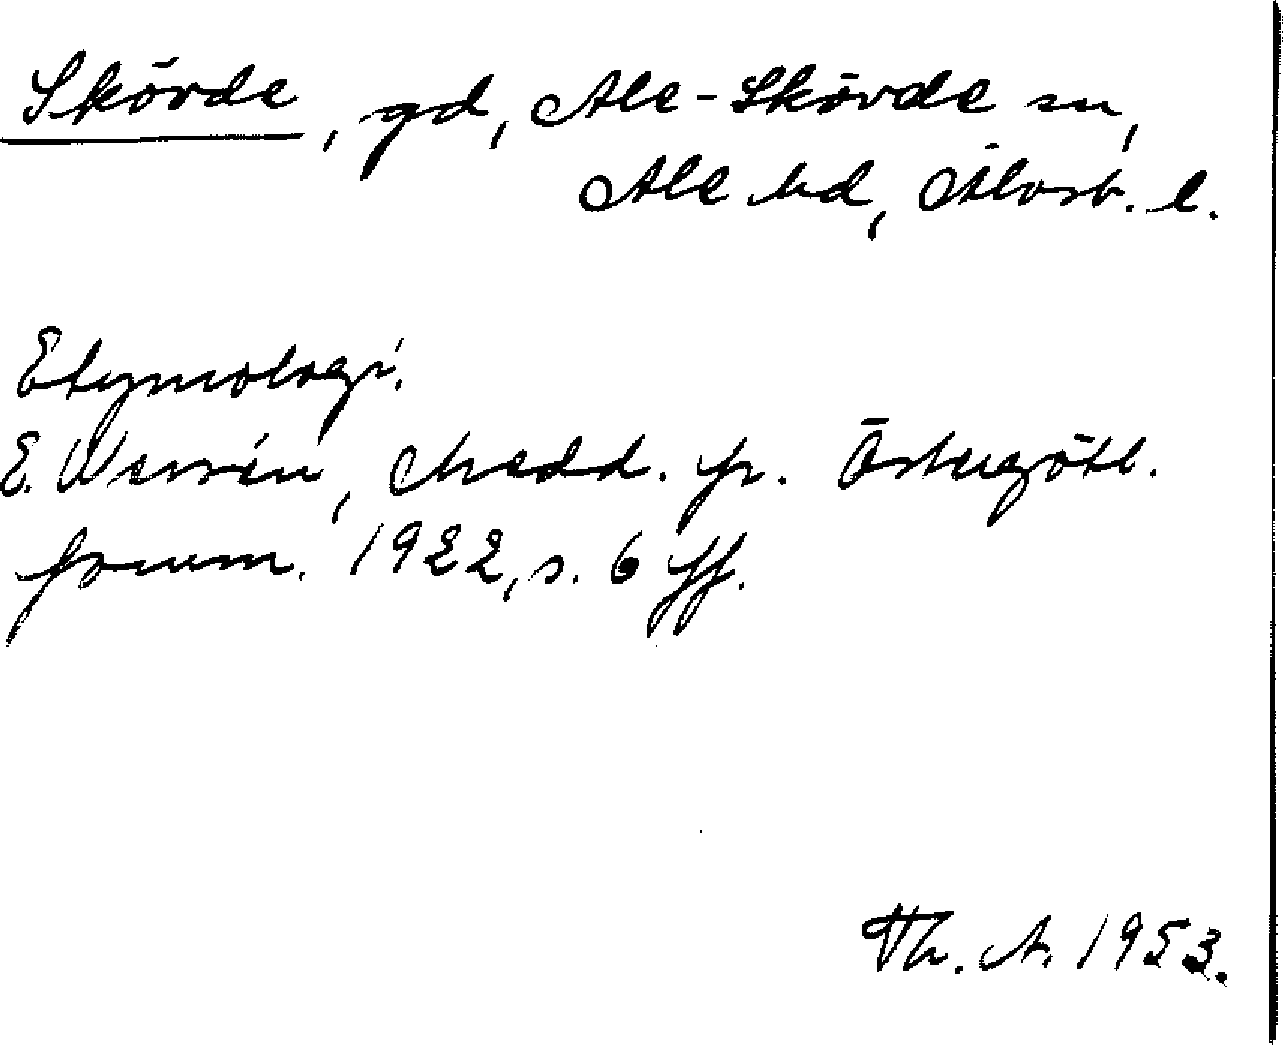 Skövde, gd, Ale-Skövde sn,
Ale hd, Älvsb. l.
Etymologi.
E. Wessén, Medd. fr. Östergötl.
fornm. 1922, s. 6 ff.
Th. A. 1953.